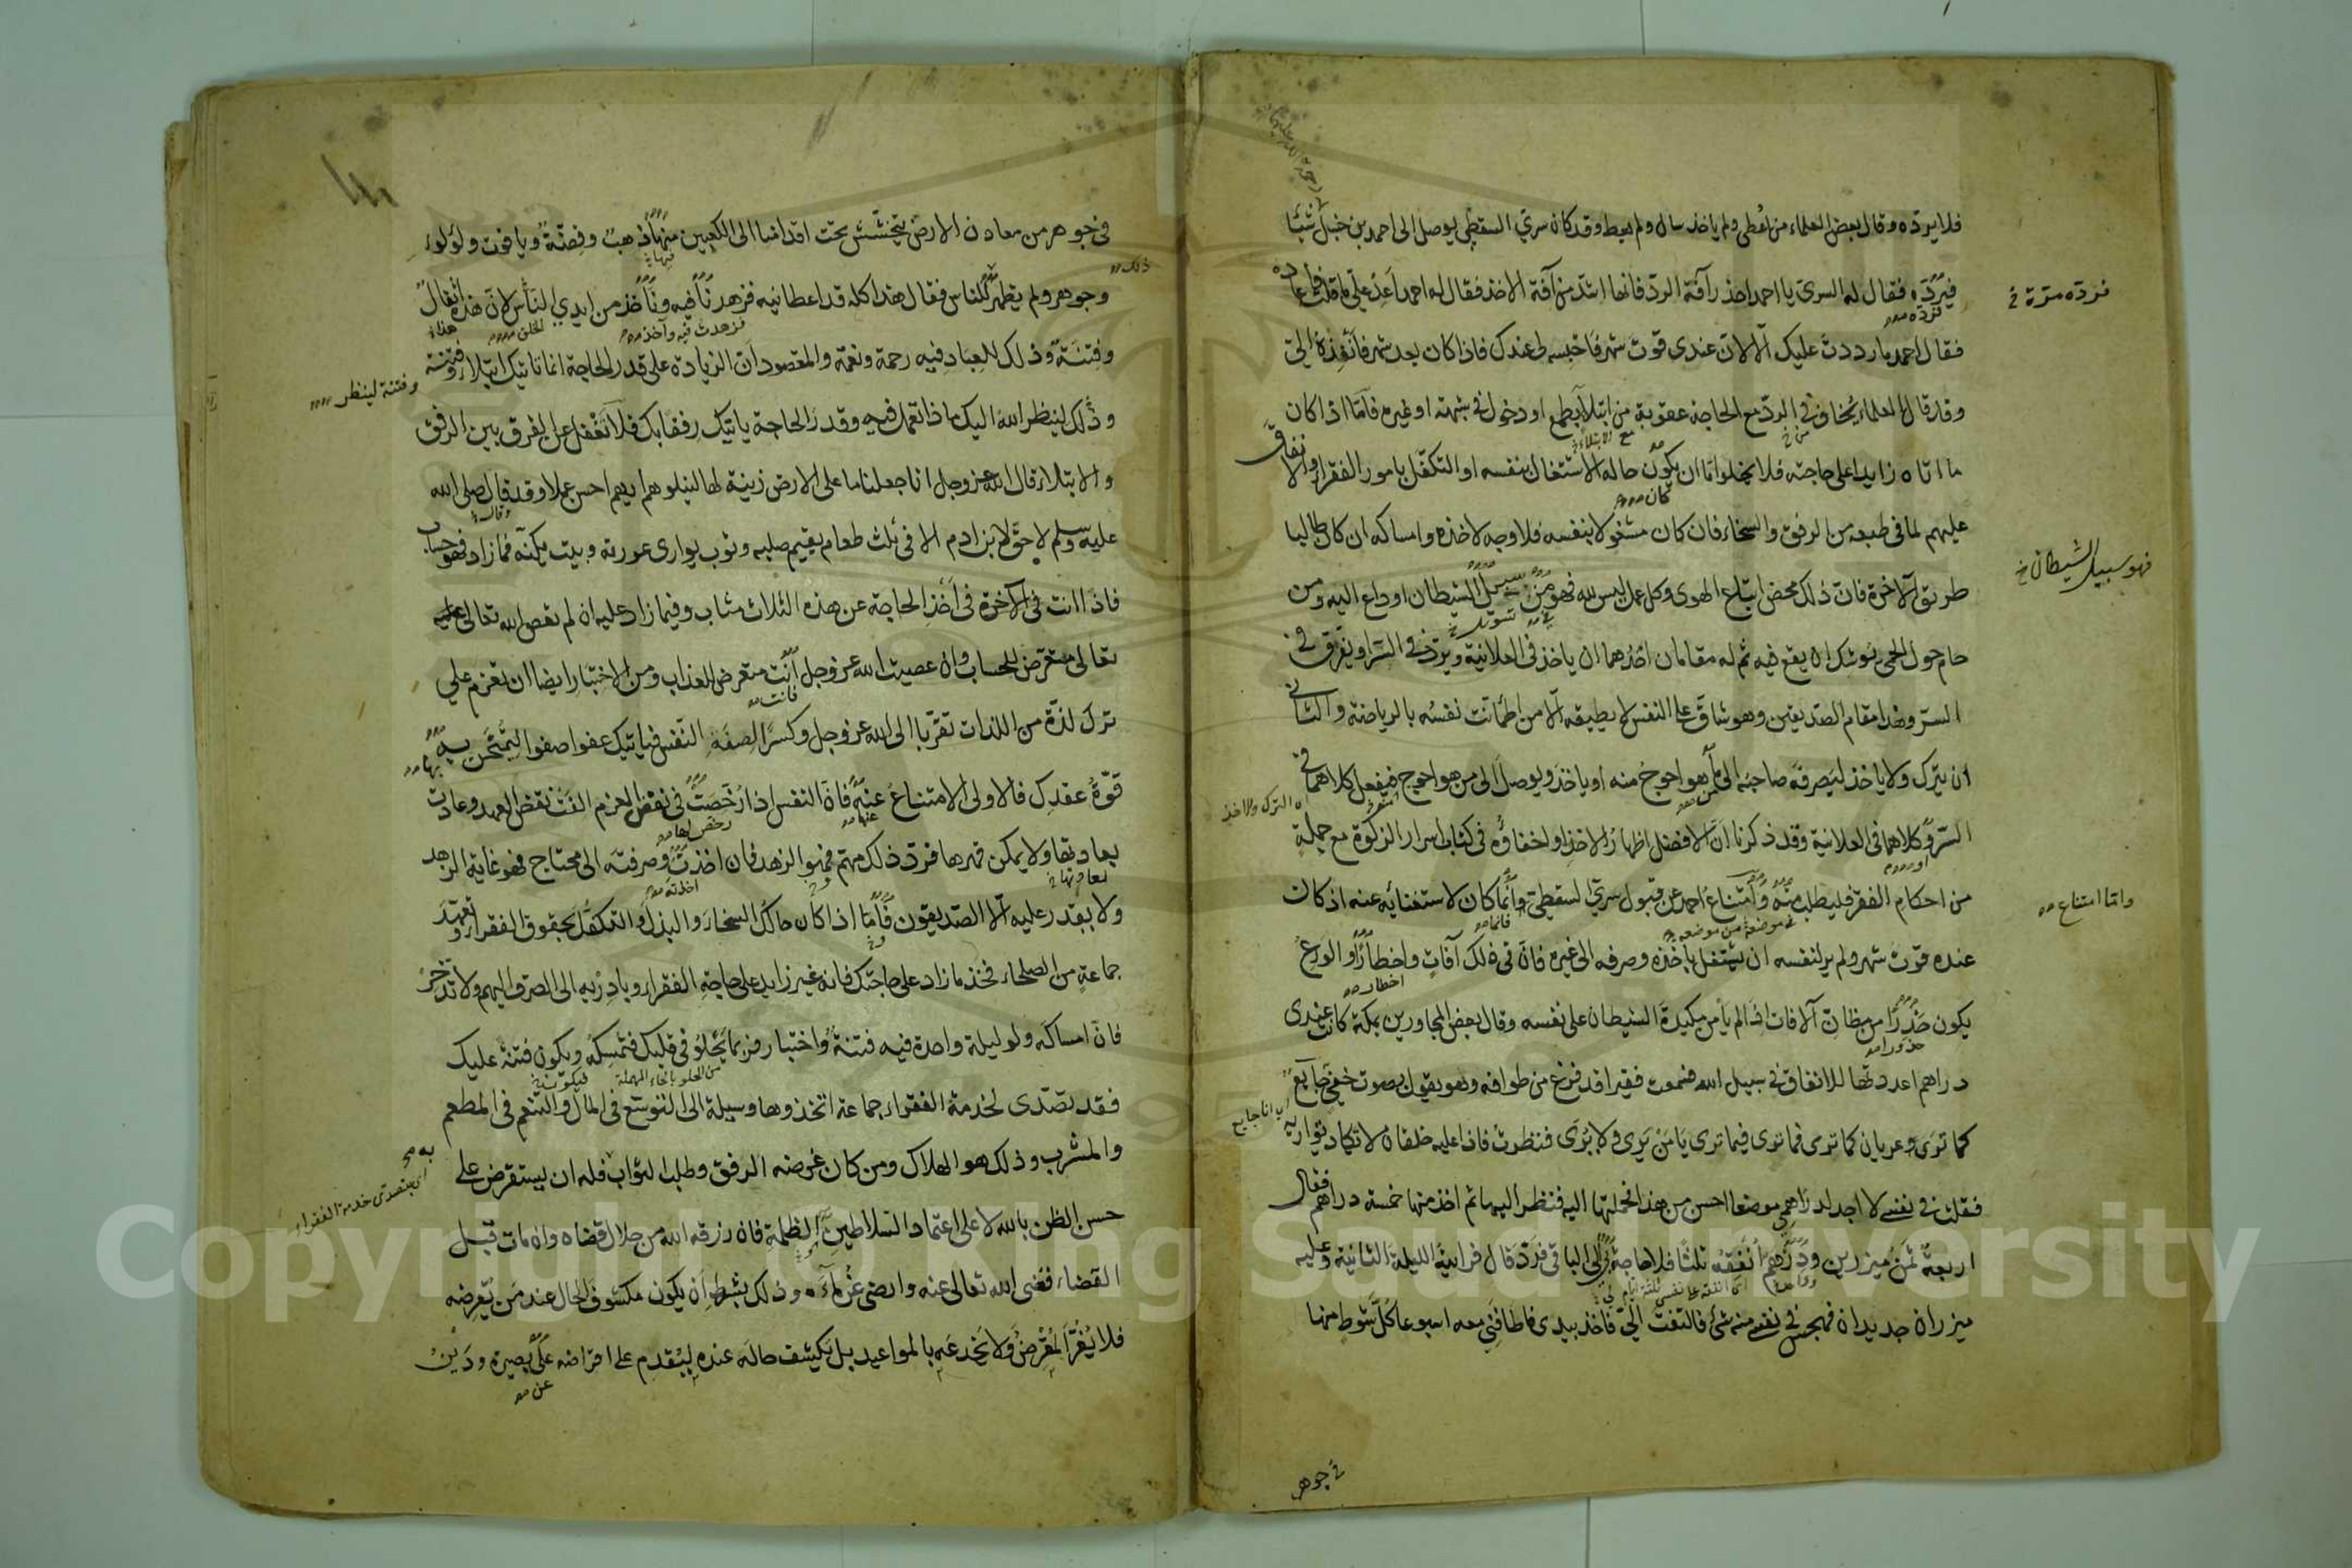 فلا يرده وقال بعض العلماء من اعطى ولم ياخذ سال ولم يعط وقد كان سري السقطي يوصل الى احمد بن حنبل شيئا
فيرده فقال له السري يا احمد احذر آفة الرد فانها اشد من آفة الاخذ فقال له احمد اعد علي ما قلت فاعاده
فقال احمد ما رددت عليك الا لان عندي قوت شهر فاحبسه لي عندك فاذا كان بعد شهر فانفذه الي
وقد قال العلماء يخاف في الرد مع الحاجة عقوبة من ابتلاء بطمع او دخول في شبهة او غيره فاما اذا كان
ما اتاه زايدا على حاجته فلا يخلوا اما ان يكون حاله الاشتغال بنفسه او التكفل بامور الفقراء والانفاق
عليهم لما في طبعه من الرفق والسخاء فان كان مشغولا بنفسه فلا وجه لاخذه وامساكه ان كان طالبا
طريق الآخرة فان ذلك محض اتباع الهوى وكل عمل ليس لله فهو من سبيل الشيطان او داع اليه ومن
حام حول الحمى يوشك ان يقع فيه ثم له مقامان احدهما ان ياخذ في العلانية ويرد في السر او يفرق في
السر وهذا مقام الصديقين وهو شاق على النفس لا يطيقه الا من اطمأنت نفسه بالرياضة والثاني
ان يترك ولا ياخذ ليصرفه صاحبه الى من هو احوج منه او ياخذ ويوصل الى من هو احوج فيفعل كلاهما في
السر وكلاهما في العلانية وقد ذكرنا ان الافضل اظهار الاخذ او اخفاؤه في كتاب اسرار الزكوة مع جملة
من احكام الفقر فليطلب منه وامتناع احمد عن قبول سري السقطي وانما كان لاستغنائه عنه اذ كانت
عنده قوت شهر ولم ير لنفسه ان يشتغل باخذه وصرفه الى غيره فان في ذلك آفات واخطارا والورع
يكون حذرا من مظان الآفات اذ لم يأمن مكيدة الشيطان على نفسه وقال بعض المجاورين بمكة كانت عندي
دراهم اعددتها للانفاق في سبيل الله فسمعت فقيرا قد فرغ من طوافه وهو يقول بصوت خفي جايع
كما ترى وعريان كما ترى فما ترى فيما ترى يا من يرى ولا يرى فنظرت فاذا عليه خلقان لا تكاد تواريه
فقلت في نفسي لا اجد لدراهمي موضعا احسن من هذا فحملتها اليه فنظر اليها ثم اخذ منها خمسة دراهم فقال
اربعة ثمن ميزرين ودرهم انفقه ثلثا فلا حاجة بي الى الباقي فرده قال فرايته الليلة الثانية وعليه
ميزران جديدان فهجس في نفسي منه شئ فالتفت الي فاخذ بيدي فاطافني معه اسبوعا كل شوط منها
فرده مرة خ
فهو سبيل الشيطان خ
واما امتناع
في جوهر
في جوهر من معادن الارض يتخشش تحت اقدامنا الى الكعبين منها ذهب وفضة وياقوت ولؤلوء
وجوهر ولم يظهر للناس فقال هذا كله قد اعطانيه فزهدنا فيه ونأخذ من ايدي الناس لان هذه اثقال
وفتنة وذلك للعباد فيه رحمة ونعمة والمقصود ان الزيادة على قدر الحاجة انما تاتيك ابتلاء وفتنة
وذلك لينظر الله اليك ماذا تعمل فيه وقدر الحاجة ياتيك رفقا بك فلا تغفل عن الفرق بين الرفق
والابتلاء قال الله عز وجل انا جعلنا ما على الارض زينة لها لنبلوهم ايهم احسن عملا وقد قال صلى الله
عليه وسلم لا حق لابن ادم الا في ثلث طعام يقيم صلبه وثوب يواري عورته وبيت يكنه فما زاد فهو حساب
فاذا انت في الآخرة في اخذ الحاجة عن هذه الثلاث مثاب وفيما زاد عليه ان لم تعص الله تعالى
تعالى متعرض للحساب وان عصيت الله عز وجل انت متعرض للعذاب ومن الاختبار ايضا ان تعزم على
ترك لذة من اللذات تقربا الى الله عز وجل وكسرا لصفة النفس فياتيك عفوا صفوا ليمتحن به
قوة عقدك فالاولى الامتناع عنه فان النفس اذا رخصت في نقض العزم الفت نقض العهد وعادت
بعادتها ولا يمكن قهرها فرد ذلك مهم وهو الزهد فان اخذت وصرفته الى محتاج فهو غاية الزهد
ولا يقدر عليه الا الصديقون فاما اذا كان حالك السخاء والبذل والتكفل بحقوق الفقراء وتعهد
جماعة من الصلحاء فخذ ما زاد على حاجتك فانه غير زايد على حاجة الفقراء وبادر به الى الصرف اليهم ولا تدخر
فان امساكه ولو ليلة واحدة فيه فتنة واختبار فربما يحلو في قلبك فتمسكه ويكون فتنة عليك
فقد تصدى لخدمة الفقراء جماعة اتخذوها وسيلة الى التوسع في المال والتنعم في المطعم
والمشرب وذلك هو الهلاك ومن كان غرضه الرفق وطلب الثواب فله ان يستقرض على
حسن الظن بالله لا على اعتماد السلاطين الظلمة فان رزقه الله من حلال قضاه وان مات قبل
القضاء قضى الله تعالى عنه وارضى غرماءه وذلك بشرط ان يكون مكشوف الحال عند من يقرضه
فلا يغر المقرض ولا يخدعه بالمواعيد بل يكشف حاله عنده ليقدم على اقراضه على بصيرة ودين
وفتنة لينظر
Copyright © King Saud University